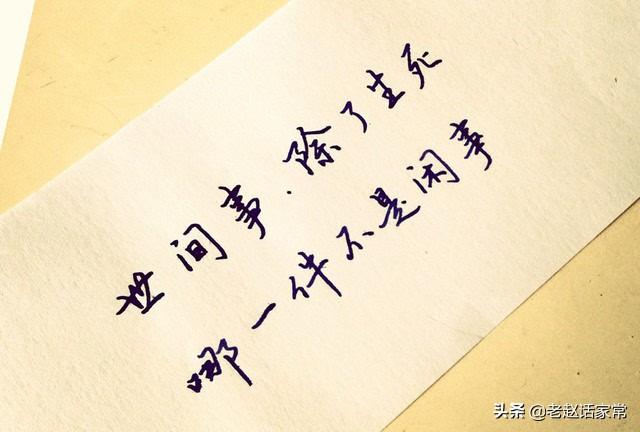 世间事.除了生死
哪一件不是闲事
头条 @老赵话家常